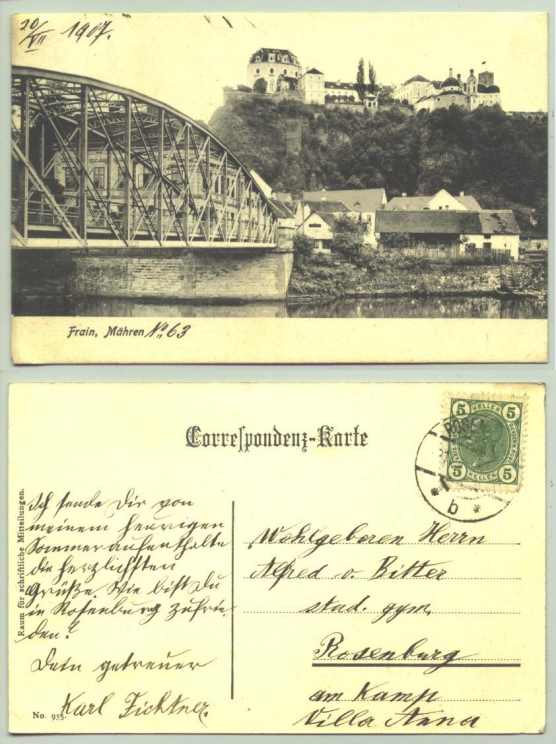 20/VII 1907.
Frain, Mähren No. 63
Correspondenz-Karte
Raum für schriftliche Mitteilungen.
Ich sende Dir von
meinem heurigen
Sommeraufenthalte
die herzlichsten
Grüße. Wie bist Du
in Rosenburg zufrie-
den?
Dein getreuer
Karl Fichtner.
No. 955
5 5
HELLER
5 5
ROSEN
* b *
Wohlgeboren Herrn
Alfred v. Bitter
stud. gym.
Rosenburg
am Kamp
Villa Anna